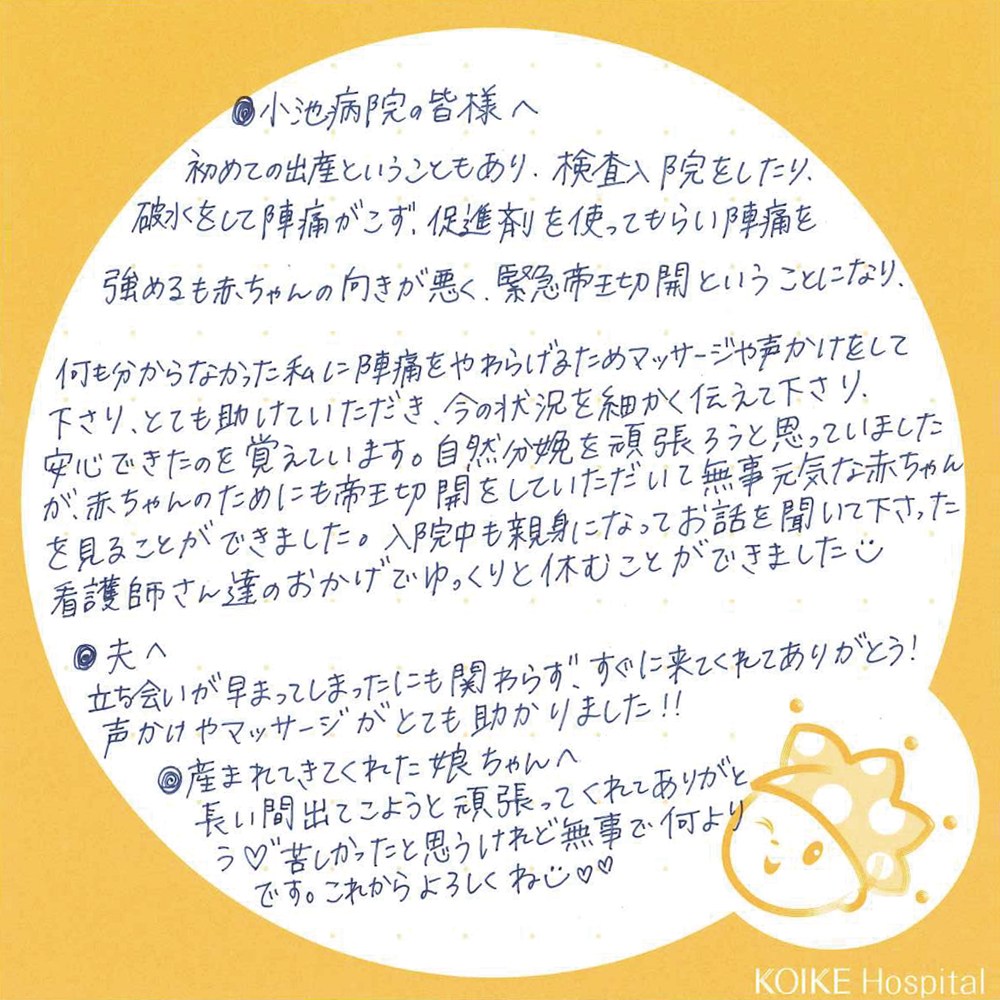 ◉小池病院の皆様へ
初めての出産ということもあり、検査入院をしたり、
破水をして陣痛がこず、促進剤を使ってもらい陣痛を
強めるも赤ちゃんの向きが悪く、緊急帝王切開ということになり、
何も分からなかった私に陣痛をやわらげるためマッサージや声かけをして
下さり、とても助けていただき、今の状況を細かく伝えて下さり、
安心できたのを覚えています。自然分娩を頑張ろうと思っていました
が、赤ちゃんのためにも帝王切開をしていただいて無事元気な赤ちゃん
を見ることができました。入院中も親身になってお話を聞いて下さった
看護師さん達のおかげでゆっくりと休むことができました
◉夫へ
立ち会いが早まってしまったにも関わらず、すぐに来てくれてありがとう!
声かけやマッサージがとても助かりました!!
◉産まれてきてくれた娘ちゃんへ
長い間出てこようと頑張ってくれてありがと
う♡苦しかったと思うけれど無事で何より
です。これからよろしくね♡♡
KOIKE Hospital